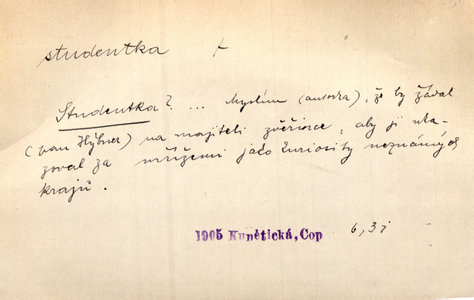 studentka +
Studentka? ... Myslím (autorka), že by žádal
(pan Hýbner) na majiteli zvěřince, aby ji uka-
zoval za mřížemi jako kuriosity neznámých
krajů.
1905 Kunětická, Cop 6,31